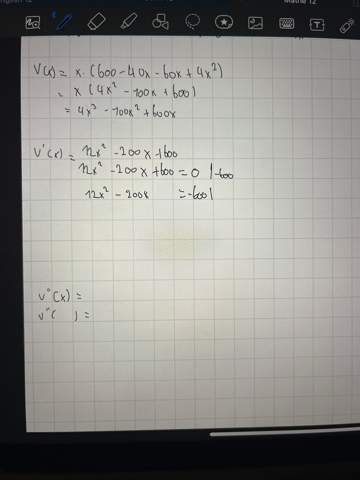 Mathe 12
V(x) = x · (600 - 40x - 60x + 4x²)
= x (4x² - 100x + 600)
= 4x³ - 100x² + 600x
V'(x) = 12x² - 200x + 600
12x² - 200x + 600 = 0 | -600
12x² - 200x = -600 |
V''(x) =
V''( ) =